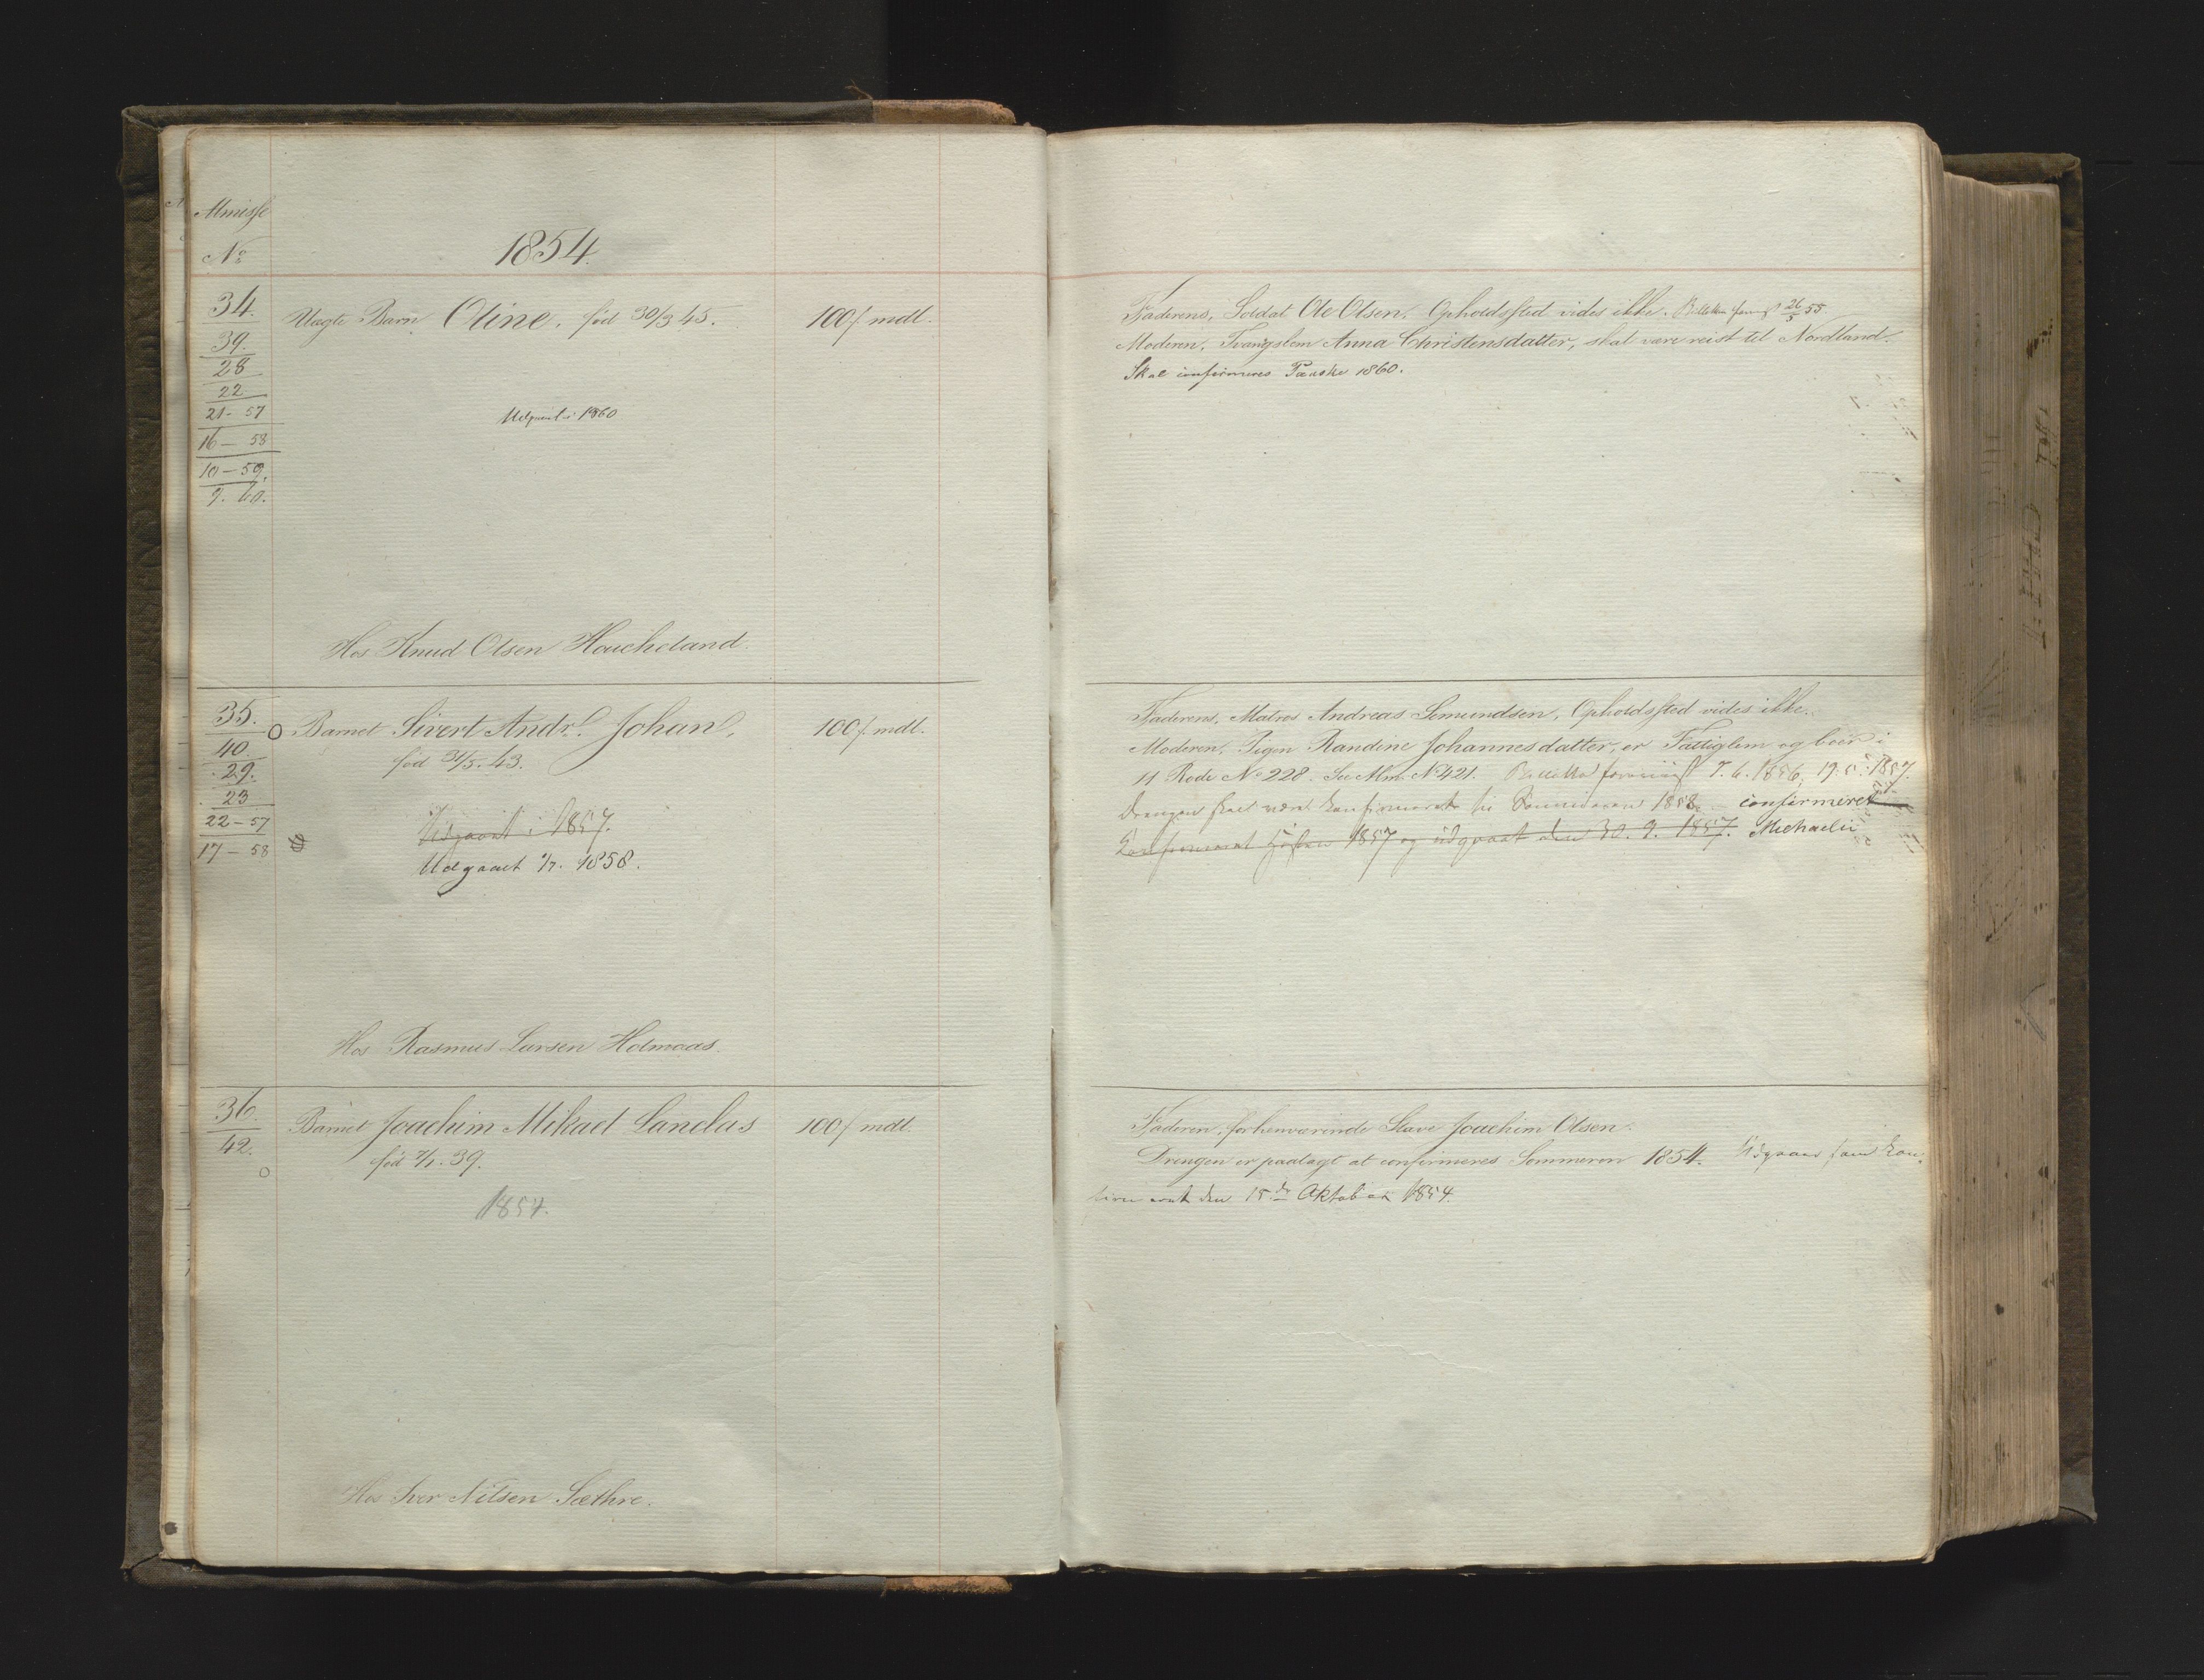 Almisse
No
1854.
34.
39.
28
22
21-57
16-58
10-59.
9.60.
Uægte Barn Oline, fød 30/3 45.
100/ mdl.
Udgaaet i 1860
Hos Knud Olsen Houcheland.
Faderens, Soldat Ole Olsen, Opholdssted vides ikke. 26/5 55
Moderen, Tvangslem Anna Christensdatter, skal være reist til Nordland.
Skal confirmeres Paaske 1860.
35.
40.
29.
23
22-57
17-58
Barnet Sivert Andr. Johan,
fød 31/5.43.
100/ mdl.
Udgaaet i 1857.
Udgaaet 1858.
Hos Rasmus Larsen Holmaas.
Faderens, Matros Andreas Semundsen, Opholdssted vides ikke.
Moderen, Pigen Randine Johannesdatter, er Fattiglem og boer i
11 Rode No 228. See Alm. No 421. 7.6.1856, 19.5.1857.
Drengen skal være konfirmeret til Sommeren 1858. confirmeret
Konfirmeret Høsten 1857 og udgaaet den 30.9.1857. Michaeli
36.
42.
Barnet Joachim Mikael Landas
fød 7/1.39.
100/ mdl.
1854.
Hos Iver Nilsen Sæthre.
Faderen, forhenværende Slave Joachim Olsen.
Drengen er paalagt at confirmeres Sommeren 1854. Udgaaet som kon-
firmeret den 15de Oktober 1854.